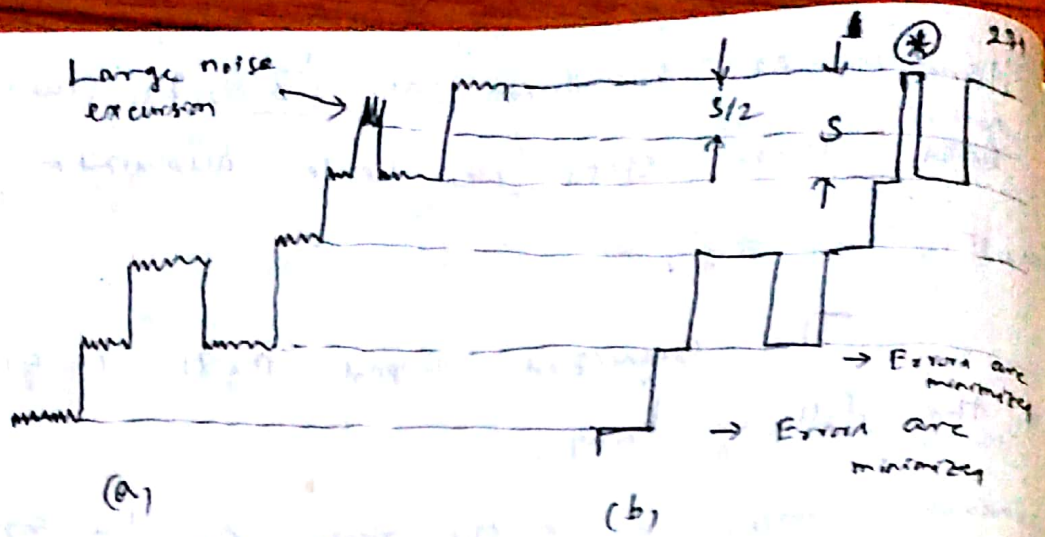 Large noise
excursion
S/2
S
*
→ Errors are
minimizes
→ Errors are
minimizes
(a)
(b)